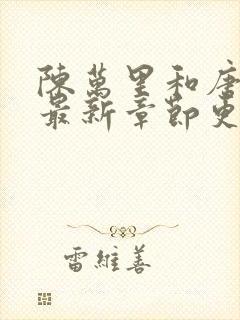 陳萬里和唐
最新章節更
雷維善